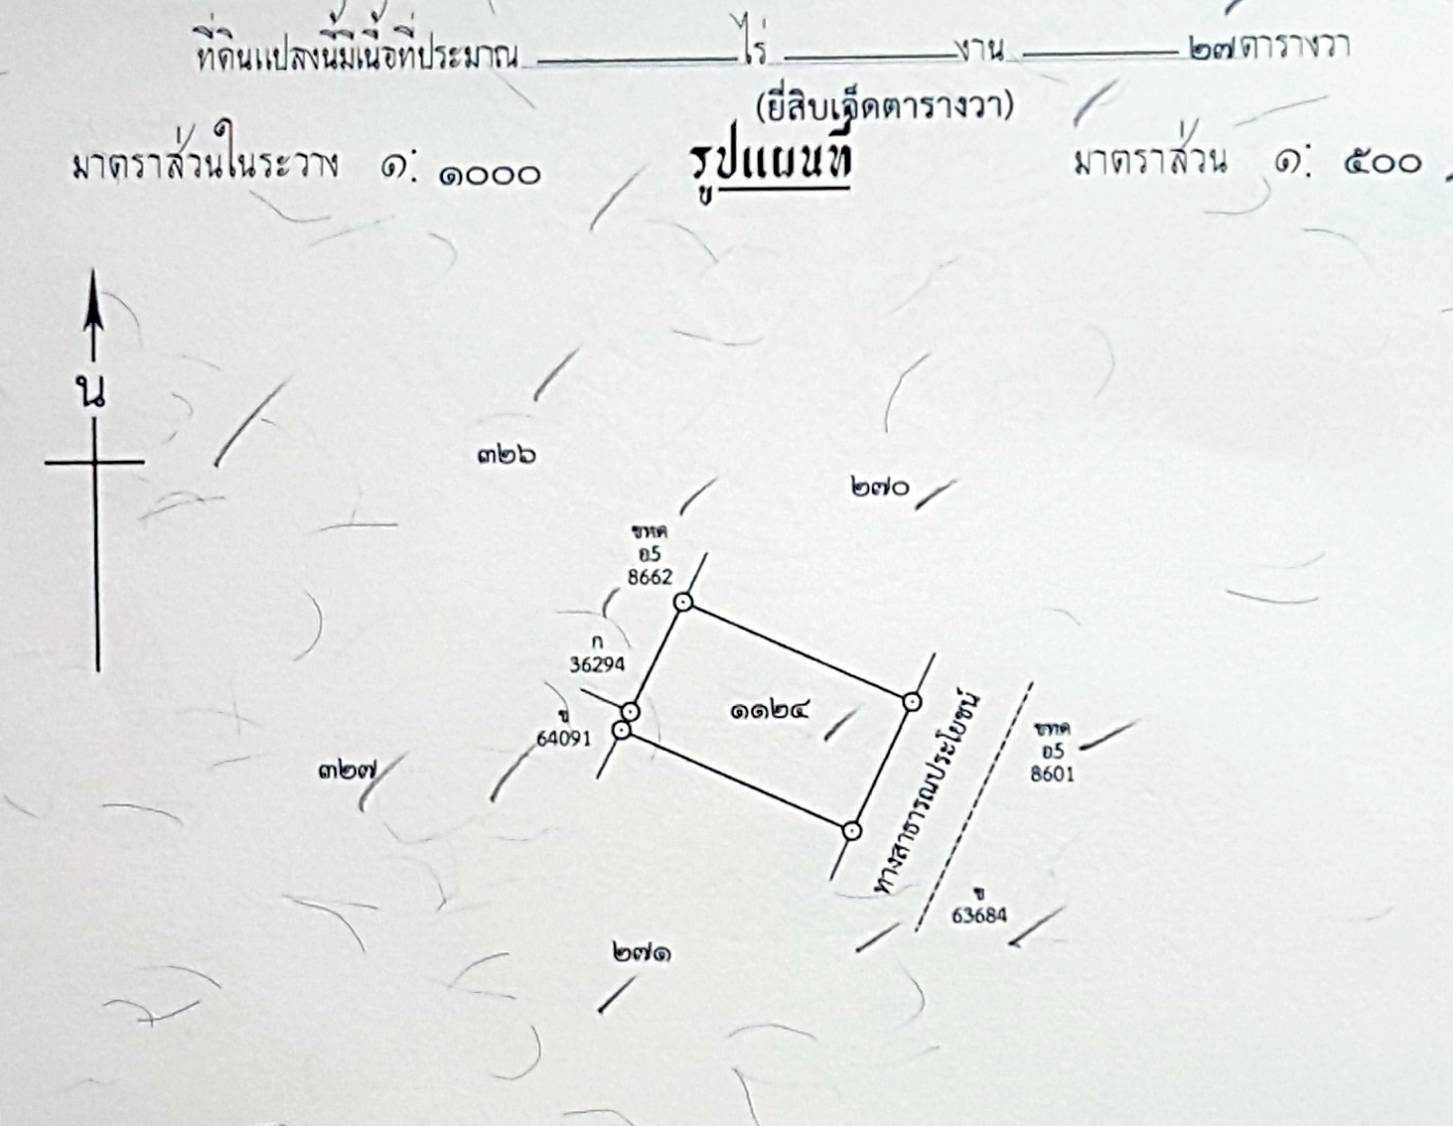 ที่ดินแปลงนี้มีเนื้อที่ประมาณ ไร่ งาน ๒๗ ตารางวา
(ยี่สิบเจ็ดตารางวา)
มาตราส่วนในระวาง ๑: ๑๐๐๐ รูปแผนที่ มาตราส่วน ๑: ๕๐๐
น
๓๒๖
๒๗๐
ขหค
อ5
8662
ก
36294
๑๑๒๔
ข
64091
ทางสาธารณประโยชน์
ขหค
อ5
8601
๓๒๗
ข
63684
๒๗๑